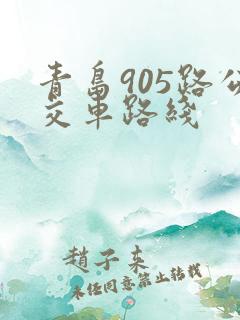 青岛905路公
交车路线
趙子来
未经同意禁止转载